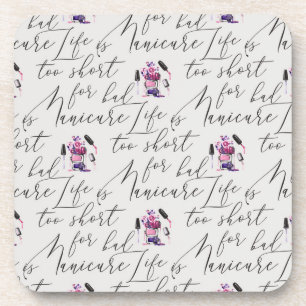 for bad
Manicure Life is
too short
for bad
is Manicure Life is
too short
for bad
is Manicure Life is
too short
for bad
is Manicure Life is